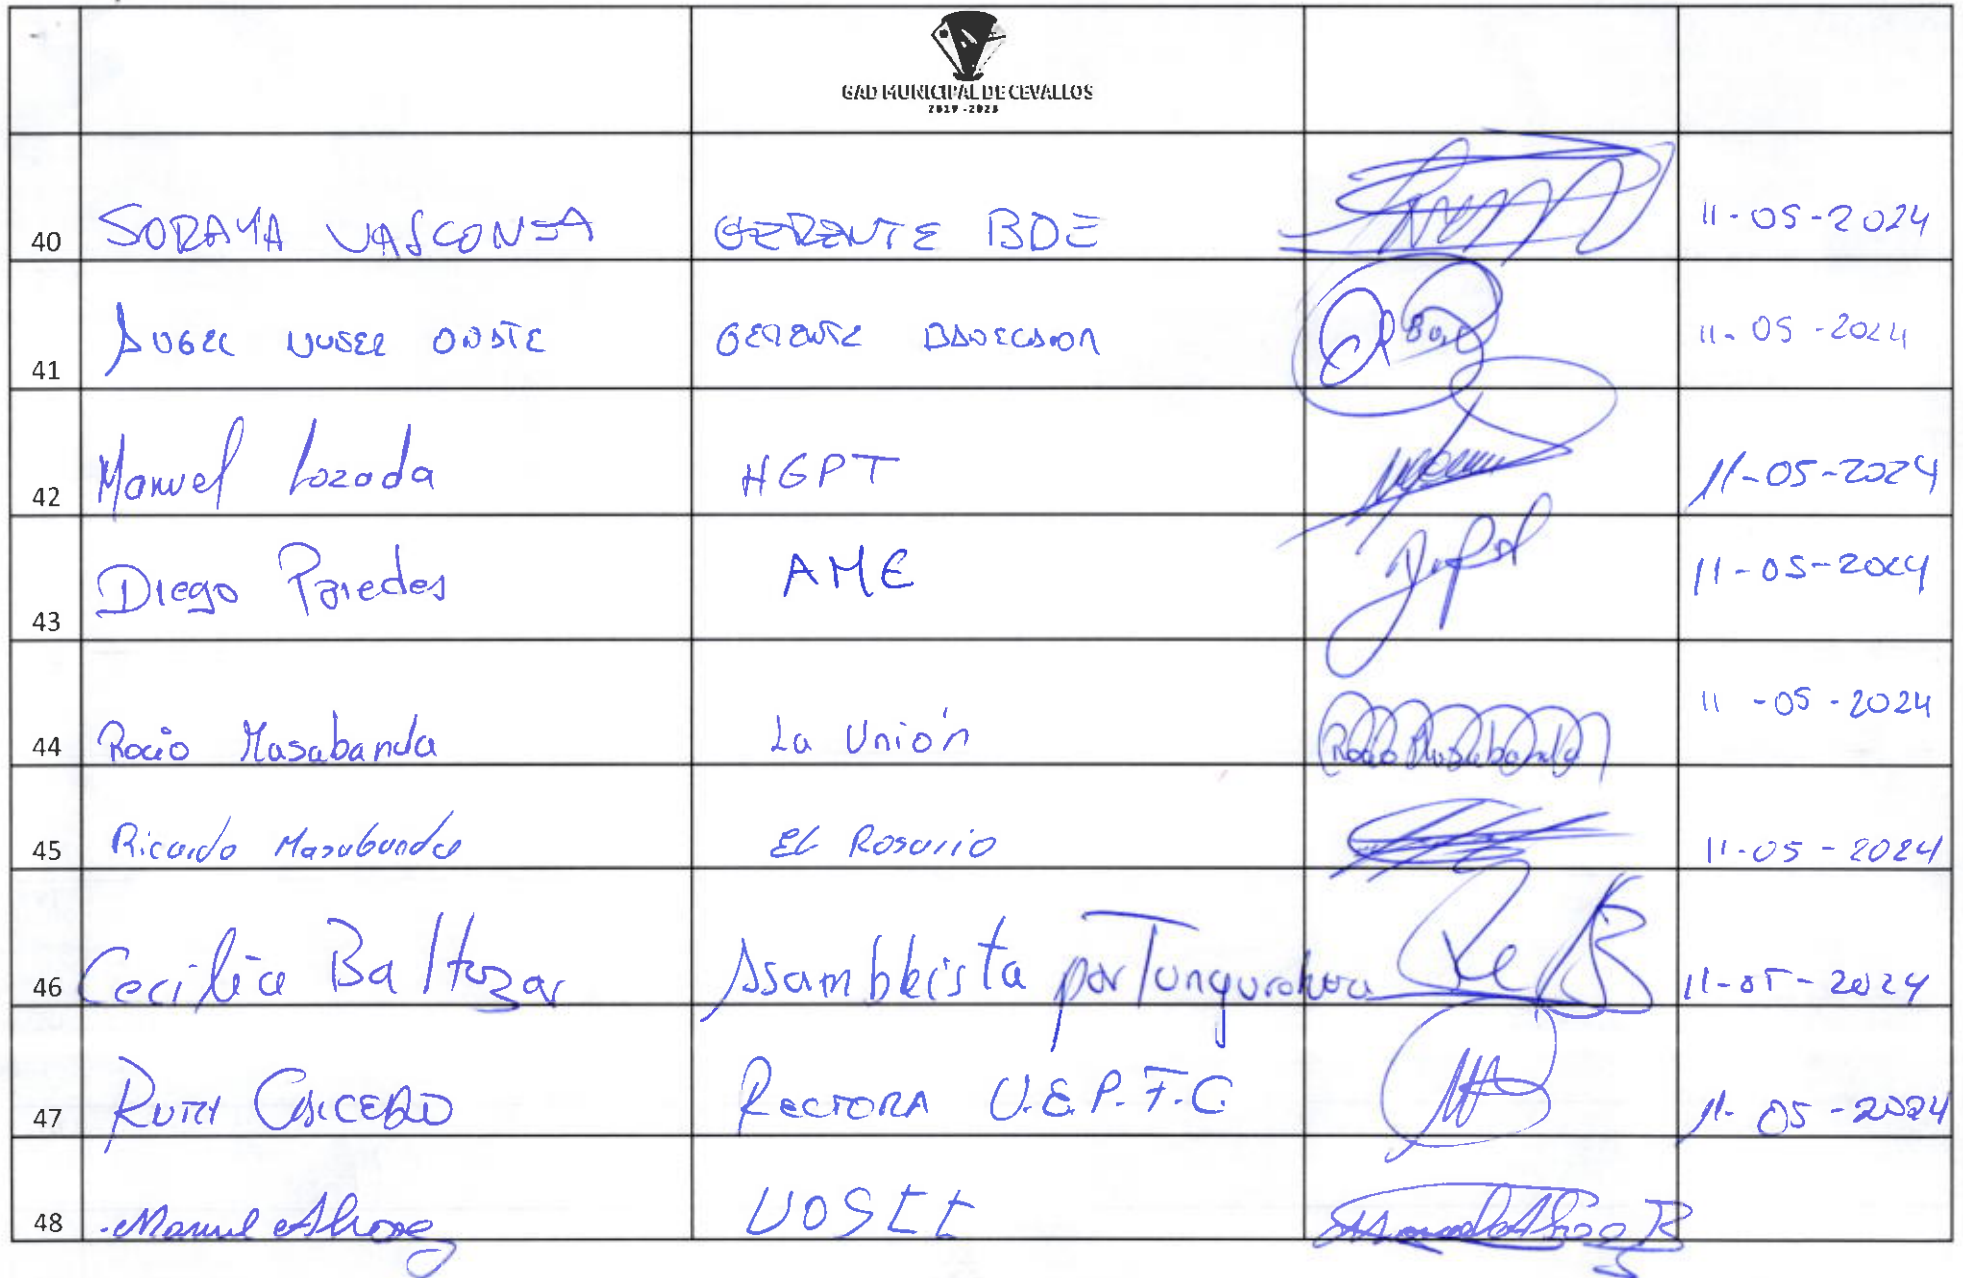 GAD MUNICIPAL DE CEVALLOS
2019 - 2023
40 SORAYA VASCONEZ GERENTE BDE 11-05-2024
41 GERENTE BANECUADOR 11-05-2024
42 Manuel Lozada HGPT 11-05-2024
43 Diego Paredes AME 11-05-2024
44 Rocío Masabanda La Unión Rocio Masabanda 11-05-2024
45 Ricardo Masabanda El Rosario 11-05-2024
46 Cecilia Baltazar Asambleista por Tungurahua 11-05-2024
47 RUTH CAICEDO RECTORA U.E.P.F.C 11-05-2024
48 Manuel